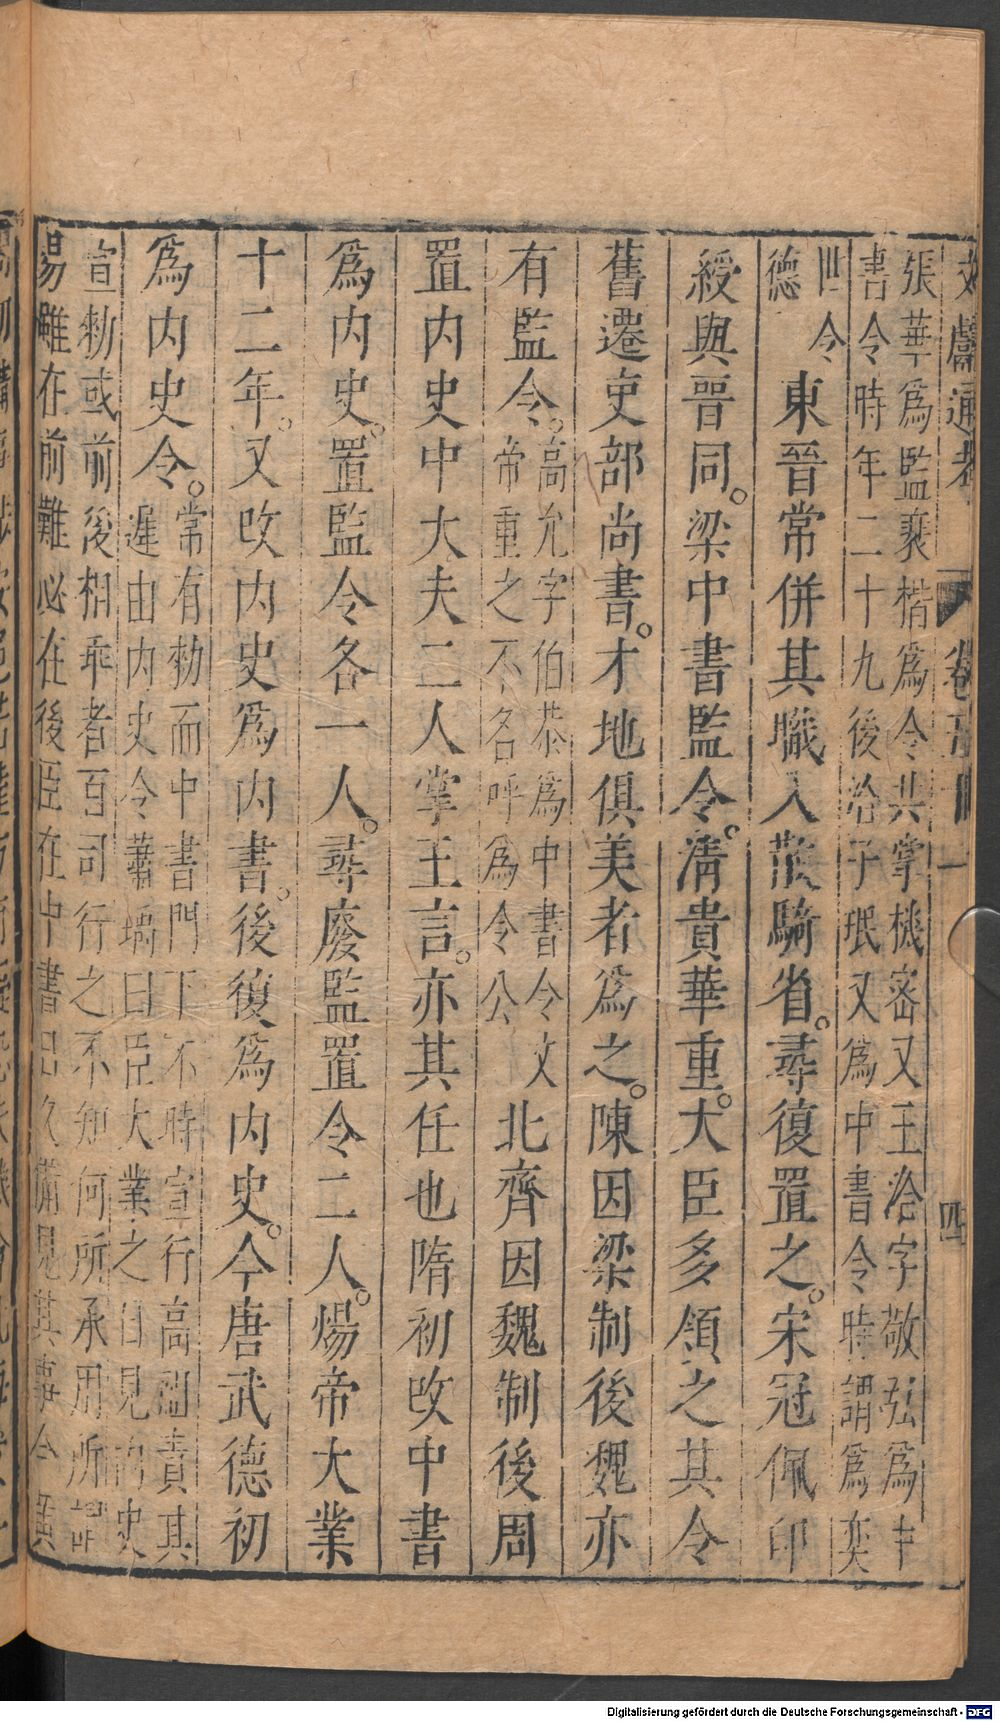 文獻通考 卷五十一 四
張華爲監裴楷爲令共掌機密又王洽字敬弘爲中
書令時年二十九後洽子珉又爲中書令時謂爲奕
世令
德
東晉常併其職入散騎省。尋復置之。宋冠佩印
綬與晉同。梁中書監令。清貴華重。大臣多領之其令
舊遷吏部尚書。才地俱美者爲之。陳因梁制後魏亦
有監令。
高允字伯恭爲中書令文
帝重之不名呼爲令公
北齊因魏制後周
置内史中大夫二人掌王言。亦其任也隋初改中書
爲内史。置監令各一人。尋廢監置令二人。煬帝大業
十二年。又改内史爲内書。後復爲内史。今唐武德初
爲内史令。
常有勑而中書門下不時宣行高祖責其
遲由内史令蕭瑀曰臣大業之日見内史
宣勑或前後相乖者百司行之不知何所承用所謂
易雖在前難必在後臣在中書日久備見其事今
Digitalisierung gefördert durch die Deutsche Forschungsgemeinschaft - DFG